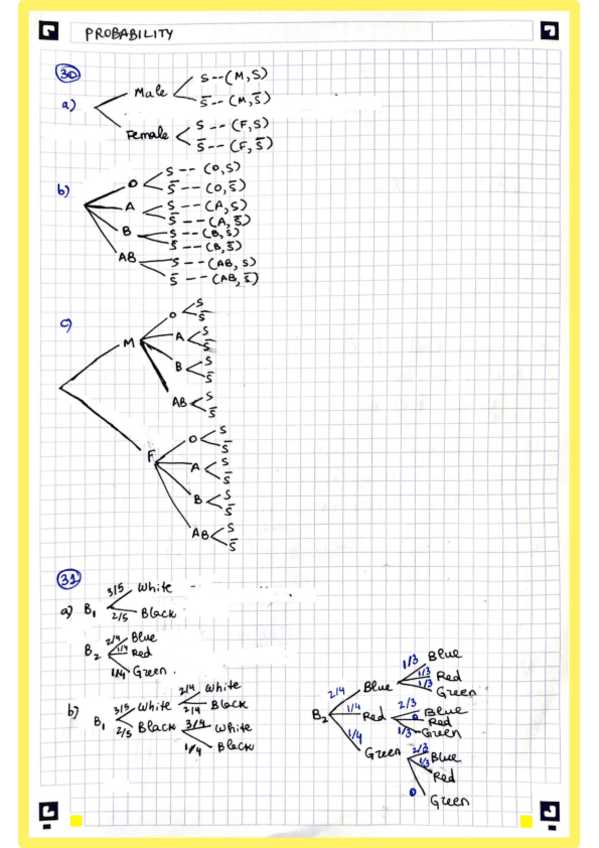 PROBABILITY
30
a)
Male
S -- (M, S)
S̅ -- (M, S̅)
Female
S -- (F, S)
S̅ -- (F, S̅)
b)
O
S -- (O, S)
S̅ -- (O, S̅)
A
S -- (A, S)
S̅ -- (A, S̅)
B
S -- (B, S)
S̅ -- (B, S̅)
AB
S -- (AB, S)
S̅ -- (AB, S̅)
c)
M
O
S
S̅
A
S
S̅
B
S
S̅
AB
S
S̅
F
O
S
S̅
A
S
S̅
B
S
S̅
AB
S
S̅
31
a) B₁
3/5 White
2/5 Black
B₂
2/4 Blue
1/4 Red
1/4 Green
b) B₁
3/5 White
2/4 White
2/4 Black
2/5 Black
3/4 White
1/4 Black
B₂
2/4 Blue
1/3 Blue
1/3 Red
1/3 Green
1/4 Red
2/3 Blue
0 Red
1/3 Green
1/4 Green
2/3 Blue
1/3 Red
0 Green